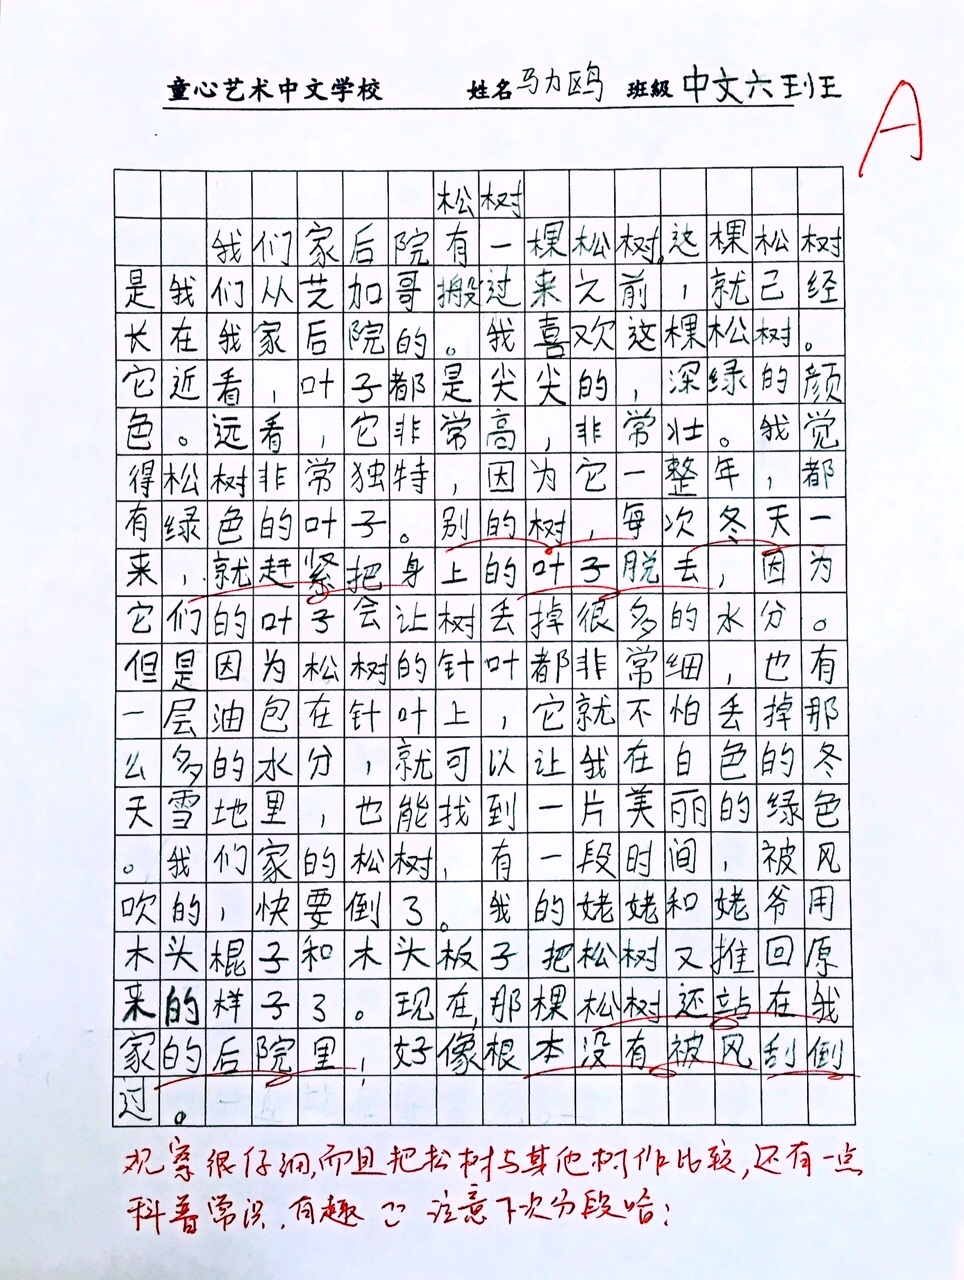 童心艺术中文学校 姓名 马力鸥 班級 中文六班
A
松树
我们家后院有一棵松树。这棵松树
是我们从芝加哥搬过来之前，就已经
长在我家后院的。我喜欢这棵松树。
它近看，叶子都是尖尖的，深绿的颜
色。远看，它非常高，非常壮。我觉
得松树非常独特，因为它一整年，都
有绿色的叶子。别的树，每次冬天一
来，就赶紧把身上的叶子脱去，因为
它们的叶子会让树丢掉很多的水分。
但是因为松树的针叶都非常细，也有
一层油包在针叶上，它就不怕丢掉那
么多的水分，就可以让我在白色的冬
天雪地里，也能找到一片美丽的绿色
。我们家的松树，有一段时间，被风
吹的，快要倒了。我的姥姥和姥爷用
木头棍子和木头板子把松树又推回原
来的样子了。现在，那棵松树还站在我
家的后院里，好像根本没有被风刮倒
过。
观察很仔细，而且把松树与其他树作比较，还有一点
科普常识，有趣 注意下次分段哈！